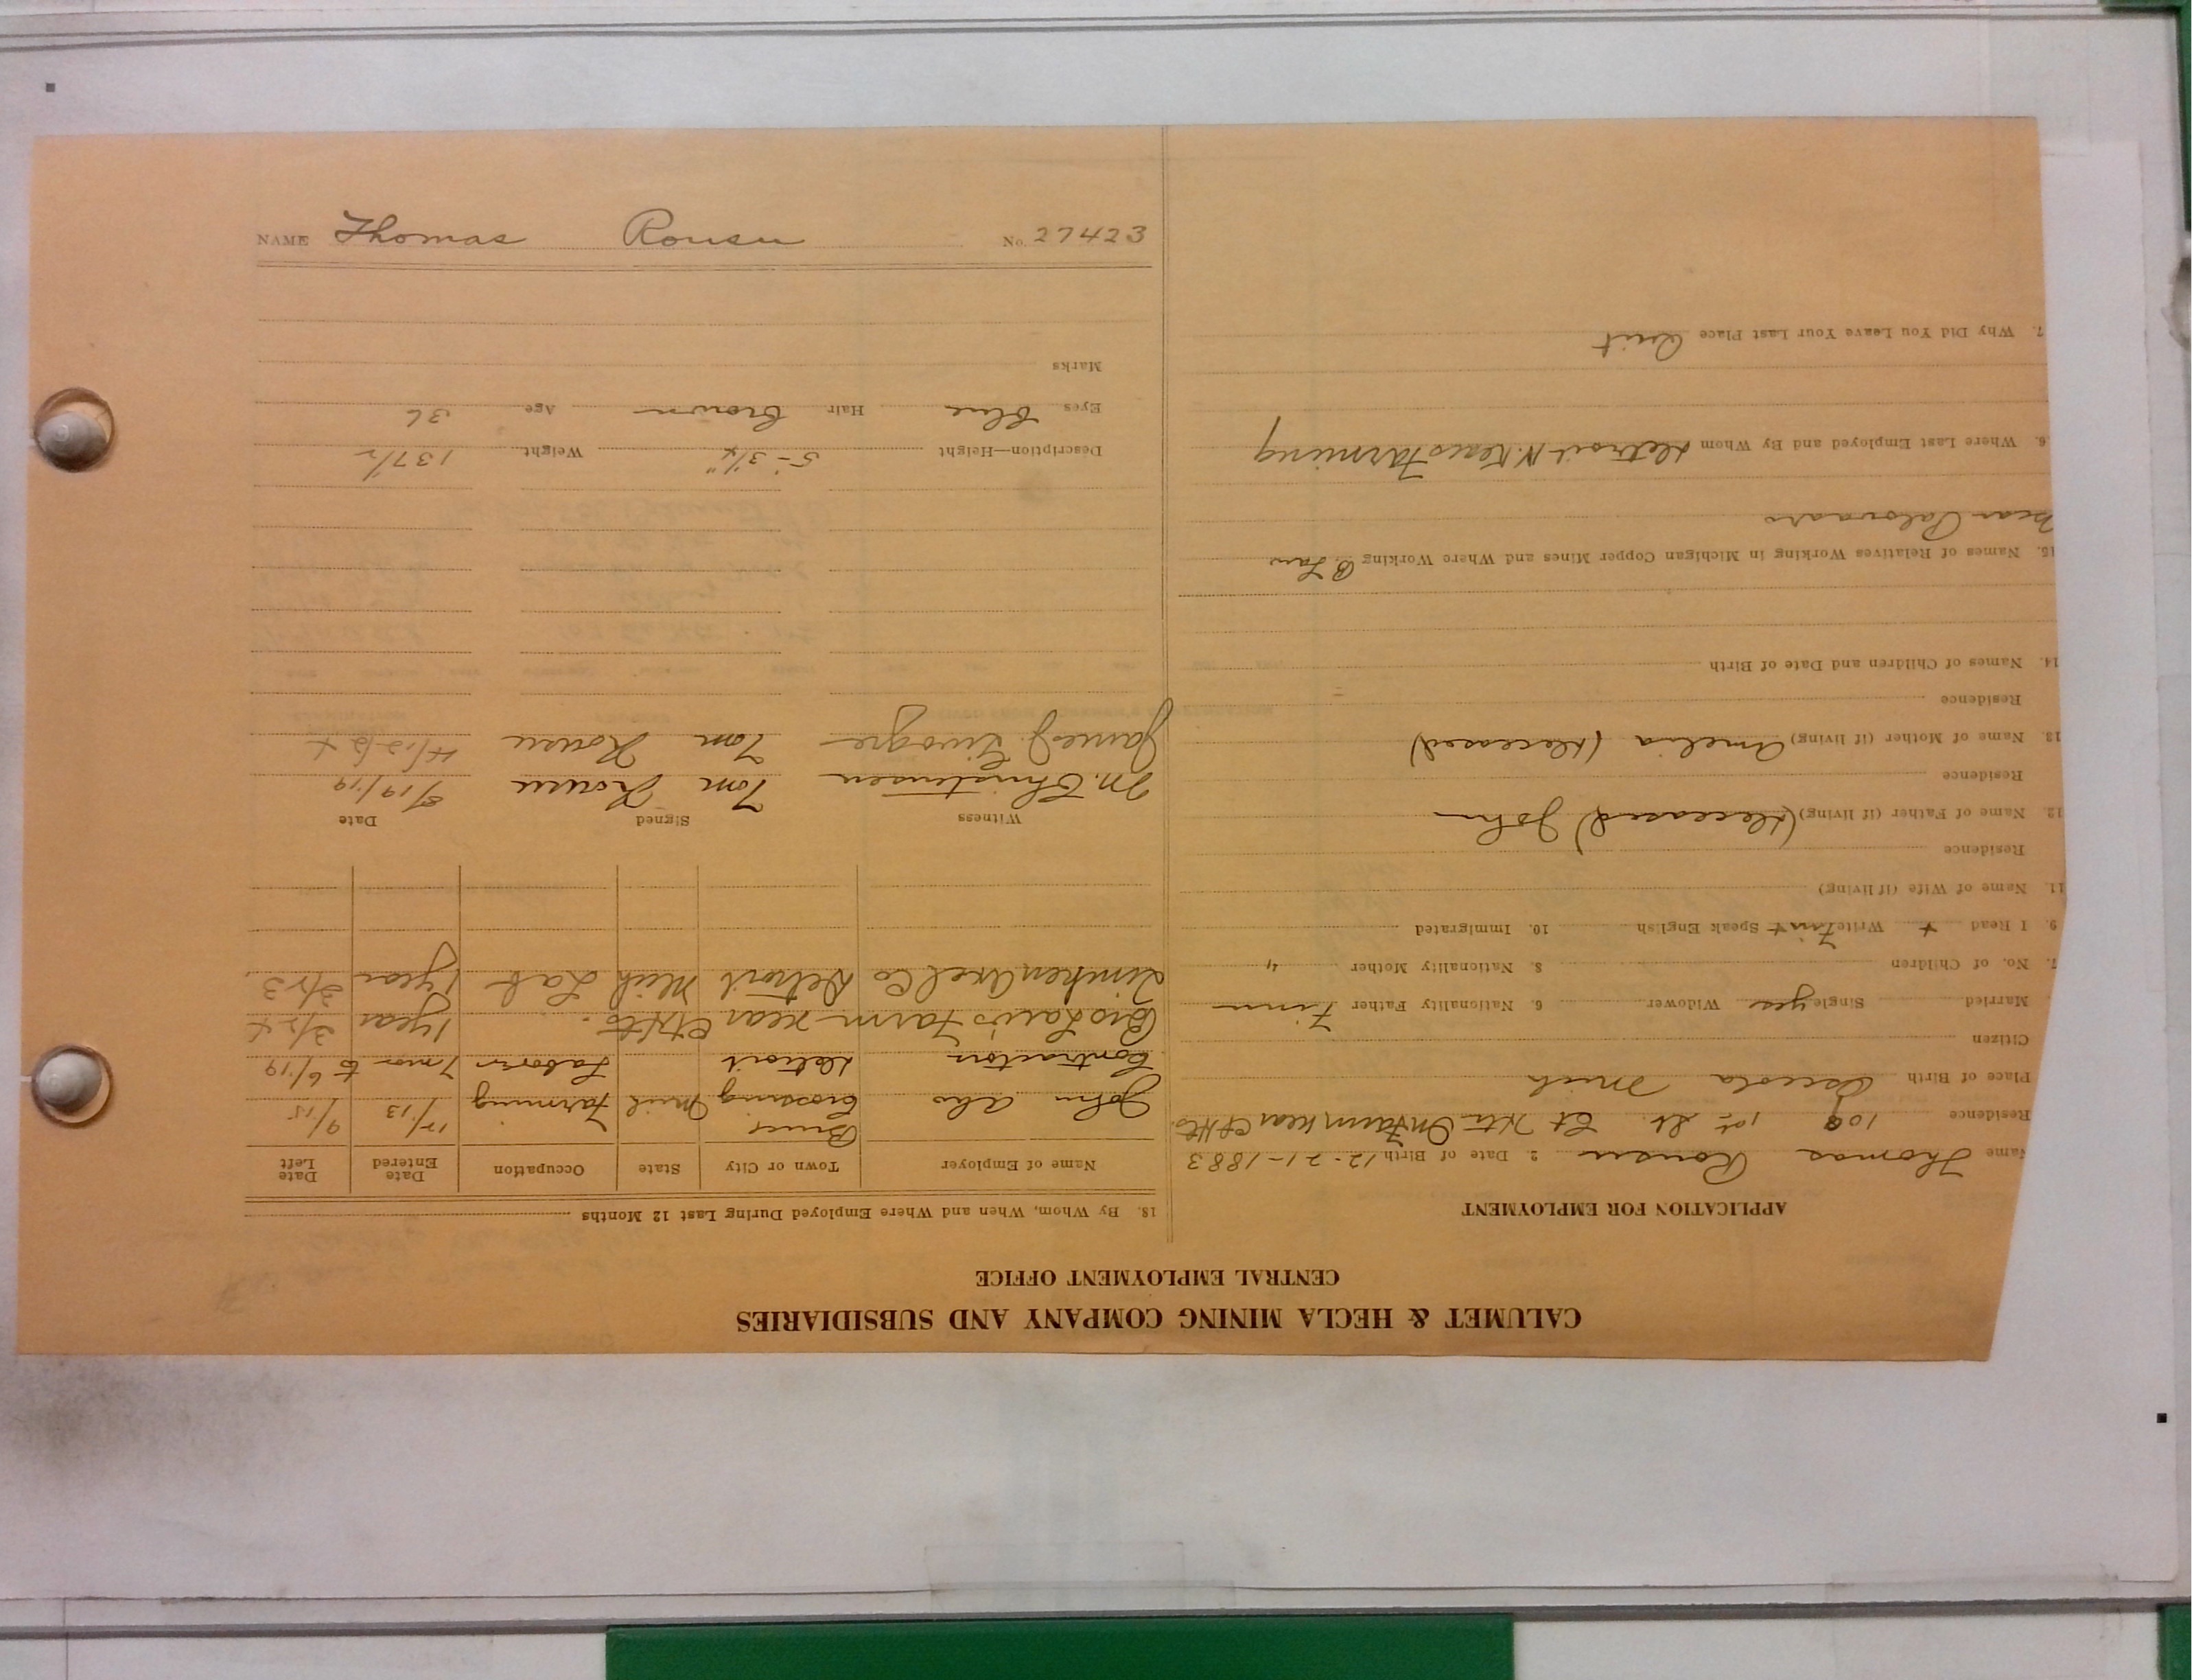 CALUMET & HECLA MINING COMPANY AND SUBSIDIARIES
CENTRAL EMPLOYMENT OFFICE
APPLICATION FOR EMPLOYMENT
Name Thomas Rousu 2. Date of Birth 12-21-1883
Residence 109 1st St. On Farm near
Place of Birth Osceola Mich
Citizen
Married Single yes Widower 6. Nationality Father Finn
7. No. of Children 8. Nationality Mother "
9. I Read + Write Finn + Speak English 10. Immigrated
11. Name of Wife (if living)
Residence
12. Name of Father (if living) (Deceased) John
Residence
13. Name of Mother (if living) Amelia (Deceased)
Residence
14. Names of Children and Date of Birth
15. Names of Relatives Working in Michigan Copper Mines and Where Working B Law
near
6. Where Last Employed and By Whom Detroit Farming
7. Why Did You Leave Your Last Place Quit
18. By Whom, When and Where Employed During Last 12 Months
Name of Employer Town or City State Occupation Date Entered Date Left
John Aho Bruces Crossing Mich Farming 12/13 9/15
Contractors Detroit Laborer 7 mos to 6/19
Bro Laws Farm near 1 year 3/24
Timken Axel Co Detroit Mich Lab 1 year 3/23.
Witness Signed Date
M. Christensen Tom Rousu 8/19/19
James J. Tom Rousu 4/12/24
Description—Height 5'-3 1/4" Weight 137 1/2
Eyes blue Hair brown Age 36
Marks
NAME Thomas Rousu No. 27423